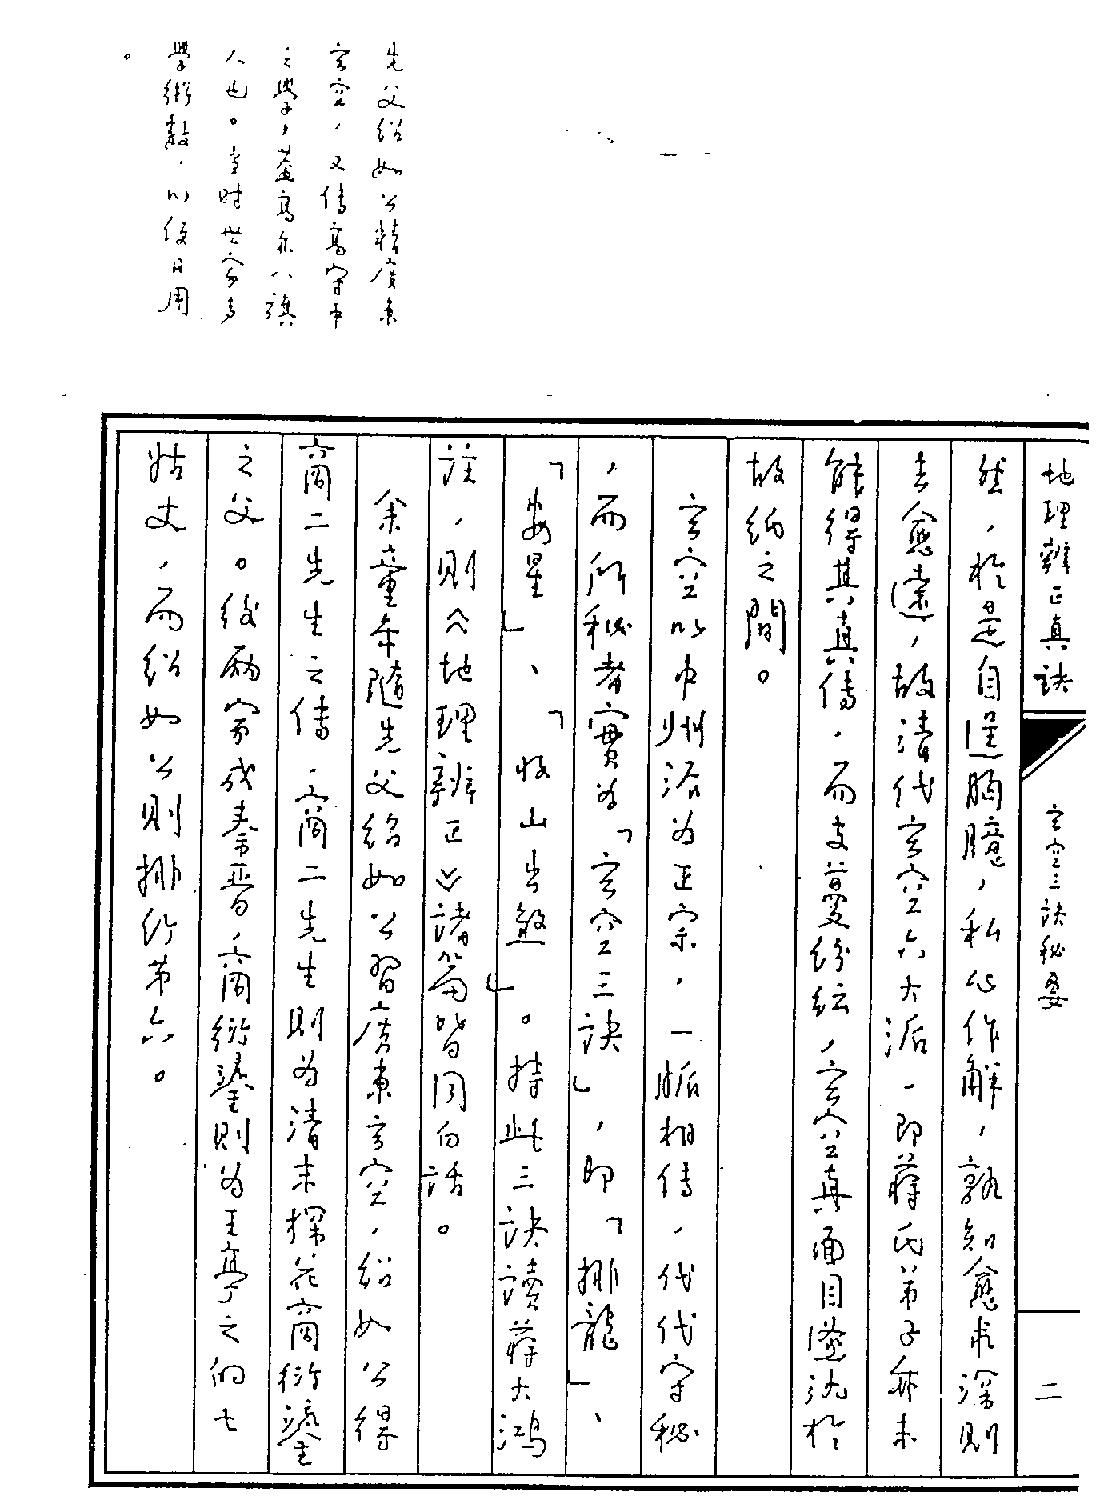 地理辨正真訣
玄空三訣秘要
二
然，於是自逞胸臆，私心作解，孰知愈求深則
去愈遠，故清代玄空六大派，即蔣氏弟子亦未
能得其真傳，而支蔓紛紜，玄空真面目遂沉於
故紙之間。
玄空以中州派為正宗，一脈相傳，代代守秘
，而所秘者實為「玄空三訣」，即「排龍」、
「安星」、「收山出煞」。持此三訣讀蔣大鴻
註，則《地理辨正》諸篇皆同白話。
余童年隨先父紹如公習廣東玄空，紹如公得
商二先生之傳，商二先生則為清末探花商衍鎏
之父。後兩家成秦晉，商衍鎏則為王亭之的七
姑丈，而紹如公則排行第六。
先父紹如公精廣東
玄空，又傳高守中
之學，蓋高亦八旗
人也。當時世家多
學術數，以便日用
。